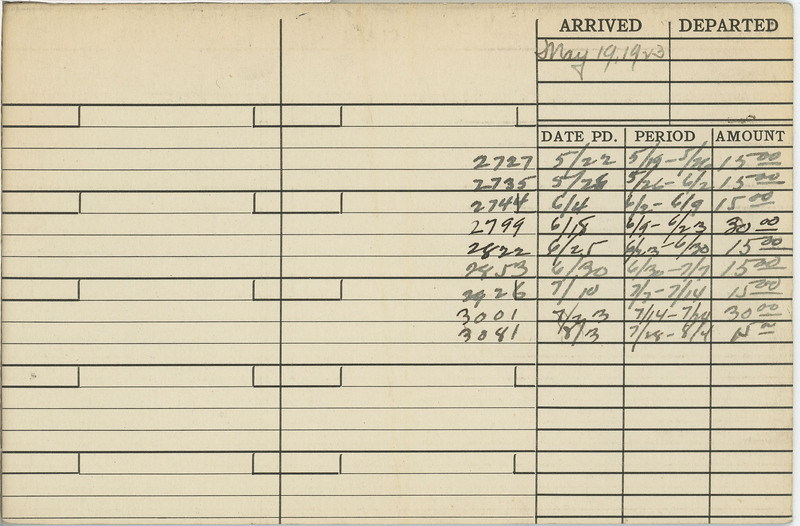 ARRIVED DEPARTED
May 19, 1923
DATE PD. PERIOD AMOUNT
2727 5/22 5/19 - 5/26 15 00
2735 5/28 5/26 - 6/2 15 00
2744 6/4 6/2 - 6/9 15 00
2799 6/18 6/9 - 6/23 30 00
2822 6/25 6/23 - 6/30 15 00
2853 6/30 6/30 - 7/7 15 00
2926 7/10 7/7 - 7/14 15 00
3001 7/23 7/14 - 7/28 30 00
3081 8/3 7/28 - 8/4 15 00